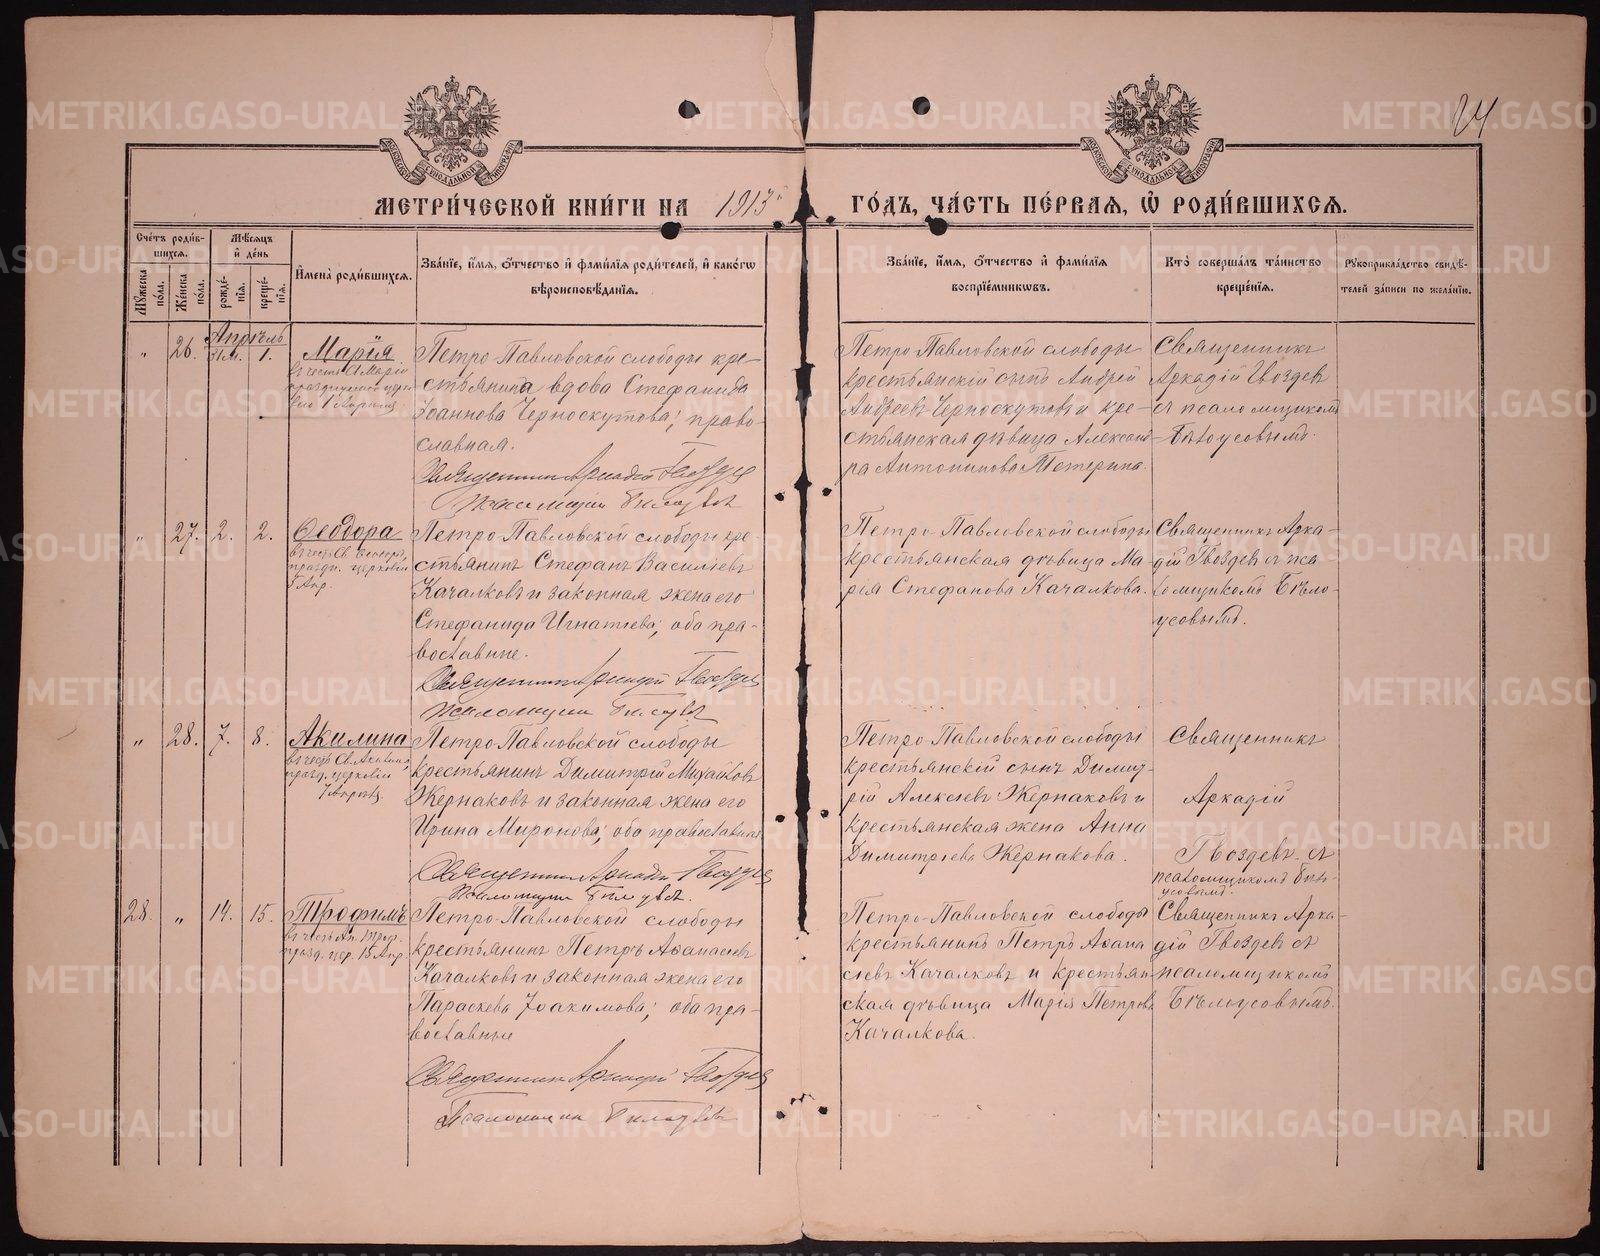 24
МЕТРИ́ЧЕСКОЙ КНИ́ГИ НА 1913 ГО́ДЪ, ЧА́СТЬ ПЕ́РВАЯ, Ѡ РОДИ́ВШИХСЯ.
Сче́тъ роди́в-
шихся.
Мꙋ́жеска по́ла.
Же́нска по́ла.
Мѣ́сяцъ
и҆ де́нь
рожде́-
нїя.
креще́-
нїя.
И҆мена̀ роди́вшихся.
Зва́нїе, и҆́мя, ѻ҆́тчество и҆ фами́лїя роди́телей, и҆ како́гѡ
вѣроисповѣ́данїя.
Зва́нїе, и҆́мя, ѻ҆́тчество и҆ фами́лїя
воспрїе́мникѡвъ.
Кто̀ соверша́лъ та́инство
креще́нїя.
Рꙋкоприкла́дство свидѣ́-
телей за́писи по жела́нїю.
Апрѣль
" 26. 31 М. 1. Марія
въ честь
1 Апрѣля
Петро-Павловской слободы кре-
стьянина вдова Стефанида
Іоаннова Черноскутова; право-
славная.
Священникъ Аркадій Гвоздевъ
Псаломщикъ Бѣлоусовъ
Петро Павловской слободы
крестьянскій сынъ Андрей
Андреевъ Черноскутовъ и кре-
стьянская дѣвица Александ-
ра Антонинова Тетерина.
Священникъ
Аркадій Гвоздевъ
съ псаломщикомъ
Бѣлоусовымъ.
" 27. 2. 2. Ѳеодора
въ честь Св. Ѳеодоры,
празд. церковію
5 Апр.
Петро-Павловской слободы кре-
стьянинъ Стефанъ Василіевъ
Качалковъ и законная жена его
Стефанида Игнатіева; оба пра-
вославные.
Священникъ Аркадій Гвоздевъ
Псаломщикъ Бѣлоусовъ
Петро-Павловской слободы
крестьянская дѣвица Ма-
рія Стефанова Качалкова.
Священникъ Арка-
дій Гвоздевъ съ пса-
ломщикомъ Бѣло-
усовымъ.
" 28. 7. 8. Акилина
въ честь Св. Акилины,
празд. церковію
7 Апрѣля
Петро-Павловской слободы
крестьянинъ Димитрій Михайловъ
Жернаковъ и законная жена его
Ирина Миронова; оба православные
Священникъ Аркадій Гвоздевъ
Псаломщикъ Бѣлоусовъ.
Петро-Павловской слободы
крестьянскій сынъ Димит-
рій Алексіевъ Жернаковъ и
крестьянская жена Анна
Димитріева Жернакова.
Священникъ
Аркадій
Гвоздевъ съ
псаломщикомъ Бѣло-
усовымъ.
28. " 14. 15. Трофимъ
въ честь Ап. Троф.
празд. цер. 15 Апр.
Петро-Павловской слободы
крестьянинъ Петръ Аѳанасіевъ
Качалковъ и законная жена его
Параскева Іоакимова; оба пра-
вославные
Священникъ Аркадій Гвоздевъ
Псаломщикъ Бѣлоусовъ
Петро-Павловской слободы
крестьянинъ Петръ Аѳана-
сіевъ Качалковъ и крестьян-
ская дѣвица Марія Петрова
Качалкова.
Священникъ Арка-
дій Гвоздевъ съ
псаломщикомъ
Бѣлоусовымъ.
METRIKI.GASO-URAL.RU